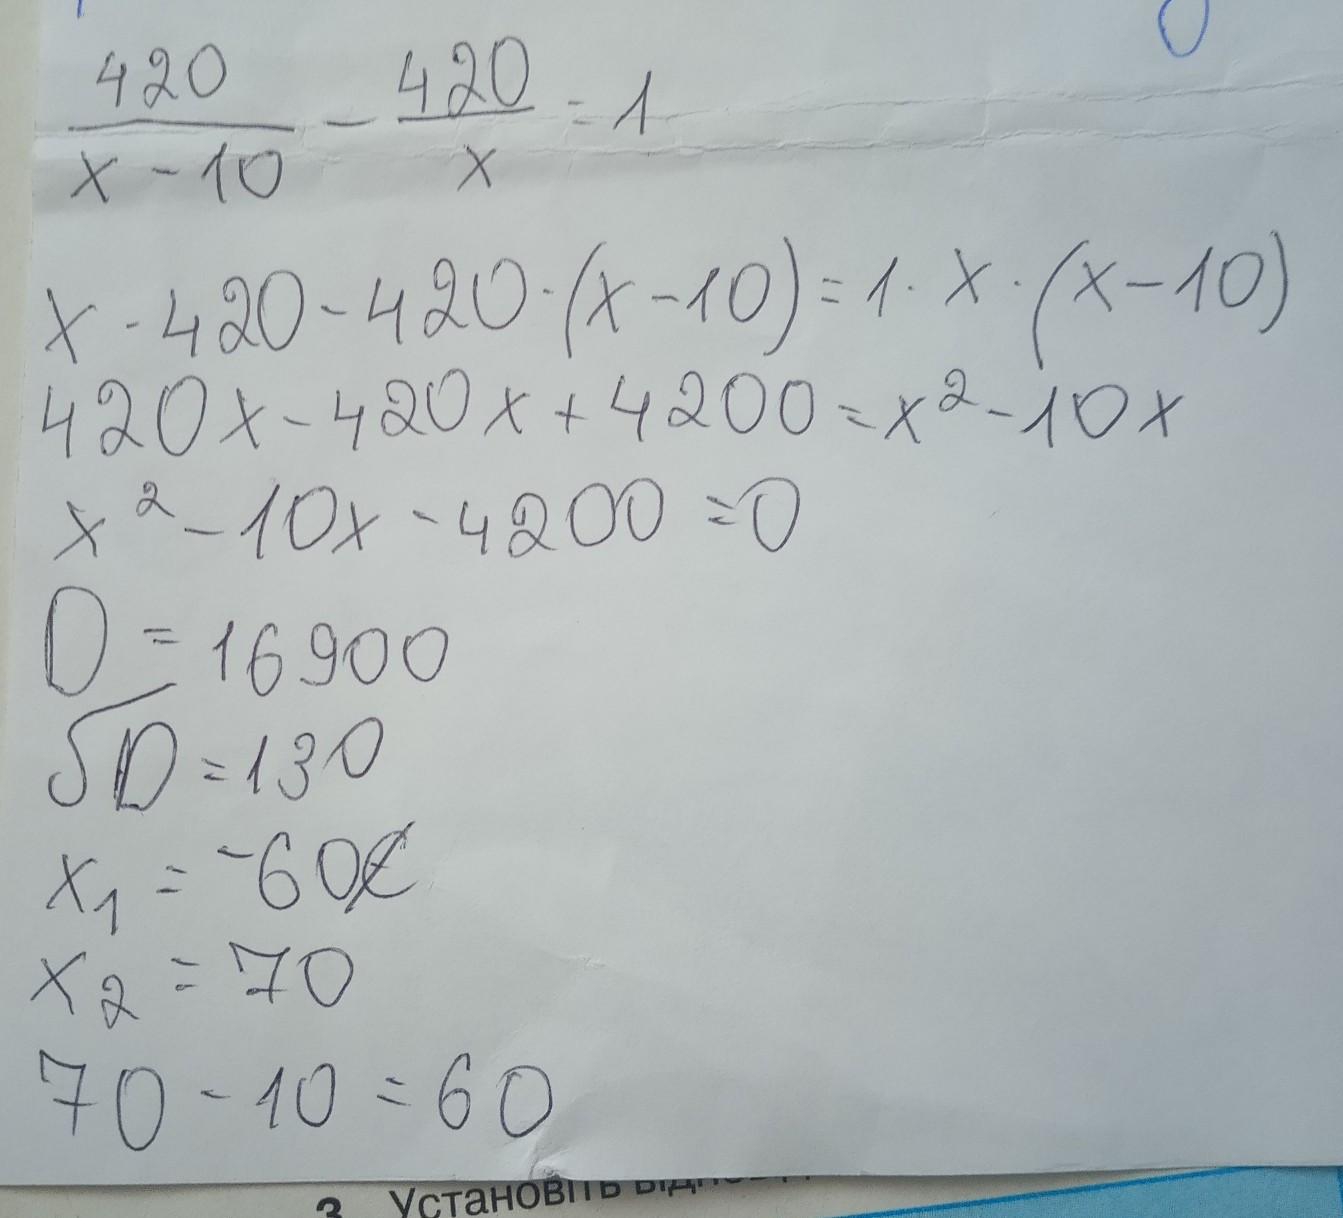 420/(x-10) - 420/x = 1
x · 420 - 420 · (x - 10) = 1 · x · (x - 10)
420x - 420x + 4200 = x² - 10x
x² - 10x - 4200 = 0
D = 16900
√D = 130
x₁ = -60
x₂ = 70
70 - 10 = 60
3 Установіть